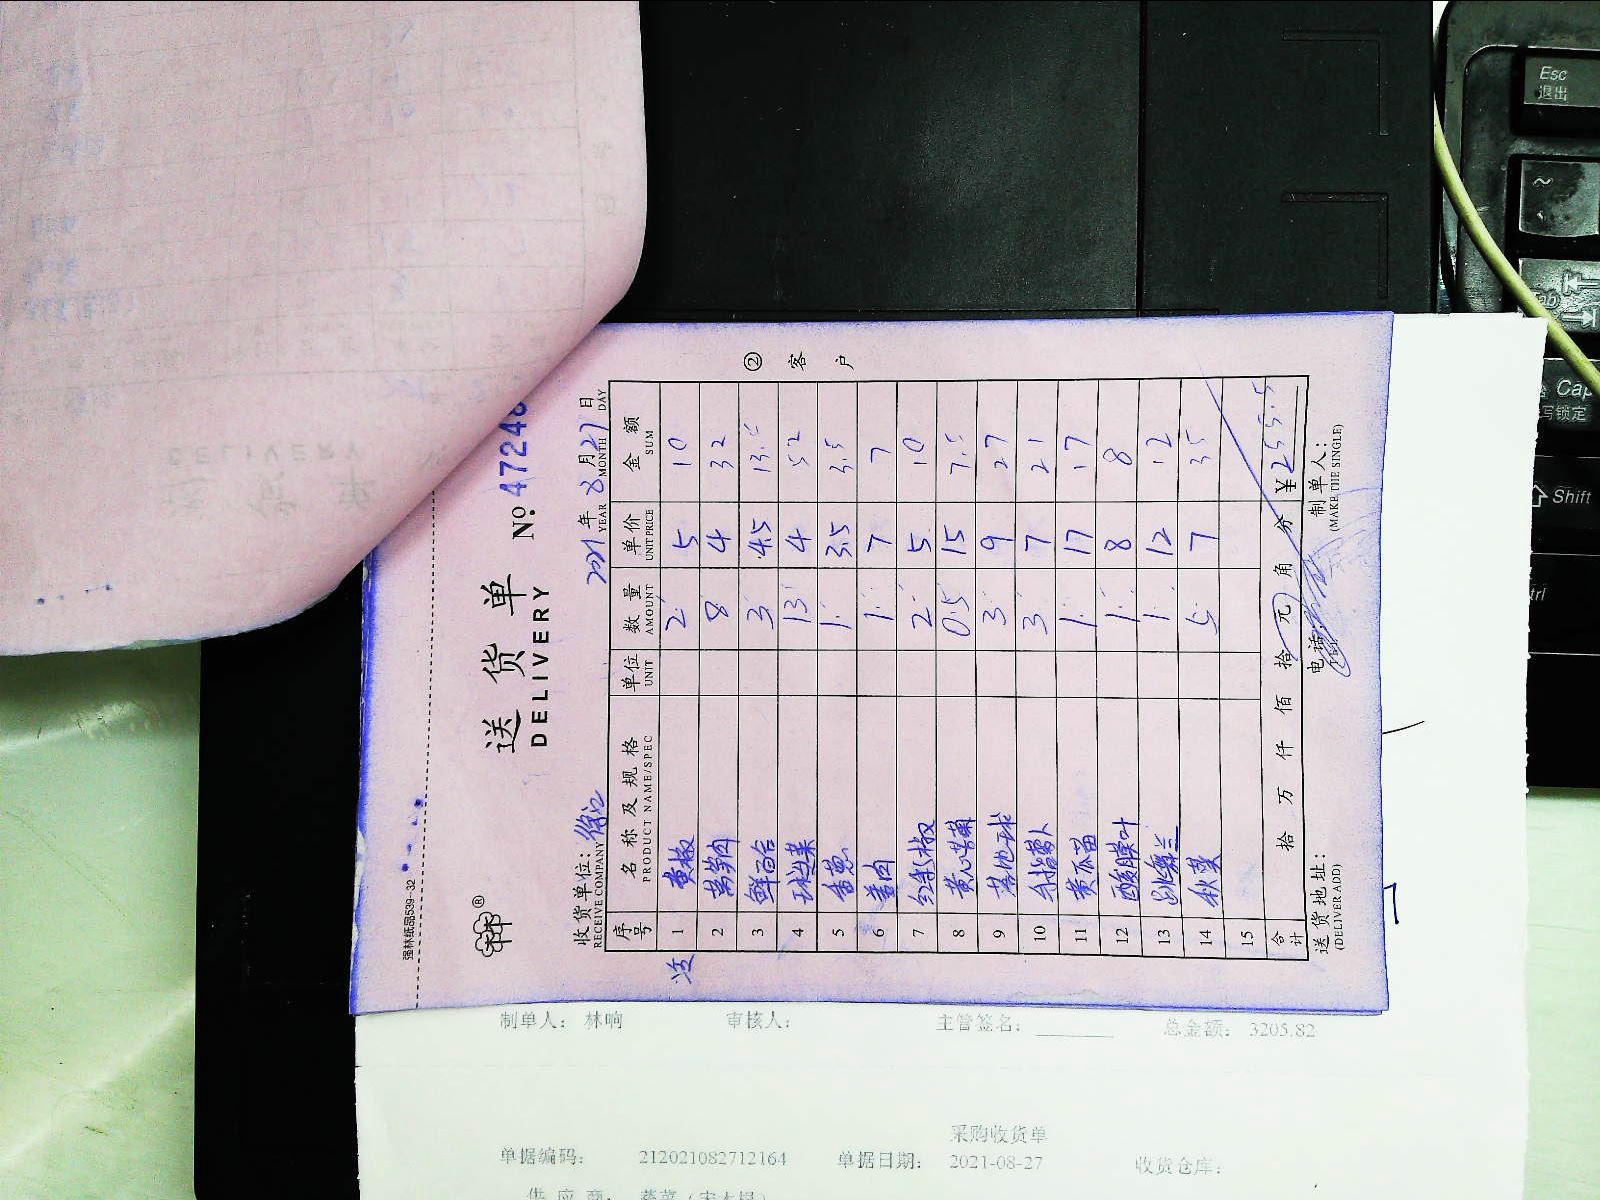 强林纸品539-32
送货单
DELIVERY
№ 47248
收货单位：
RECEIVE COMPANY
2021年 8月27日
YEAR MONTH DAY
序号 名称及规格 单位 数量 单价 金额
PRODUCT NAME/SPEC UNIT AMOUNT UNIT PRICE SUM
1 黄椒 2 5 10
2 莴笋肉 8 4 32
3 鲜百合 3 4.5 13.5
4 13 4 52
5 香葱 1 3.5 3.5
6 姜肉 1 7 7
7 红彩椒 2 5 10
8 黄心苦菊 0.5 15 7.5
9 3 9 27
10 手指萝卜 3 7 21
11 黄瓜苗 1 17 17
12 酸膜叶 1 8 8
13 跳舞兰 1 12 12
14 秋葵 5 7 35
15
合计 拾 万 仟 佰 拾 元 角 分 ¥255.5
送货地址：
(DELIVER ADD)
电话：
制单人：
(MAKE THE SINGLE)
② 客户
制单人： 林响 审核人： 主管签名： 总金额： 3205.82
采购收货单
单据编码： 212021082712164 单据日期： 2021-08-27 收货仓库：
供应商：
Esc
退出
~
Tab
Cap
写锁定
Shift
trl